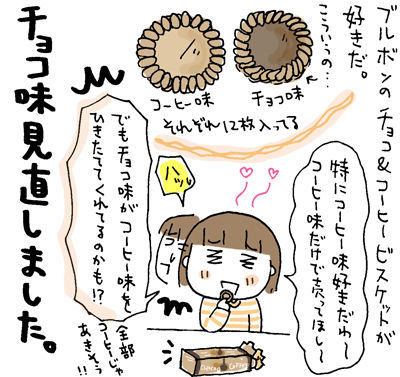 ブルボンのチョコ&コーヒービスケットが
好きだ。
こういうの…
コーヒー味
チョコ味
それぞれ12枚入ってる
特にコーヒー味好きだわ〜
コーヒー味だけで売ってほし〜
ハッ
でもチョコ味がコーヒー味を
ひきたててくれてるのかも!?
全部
コーヒーじゃ
あきそう!!
チョコ味見直しました。